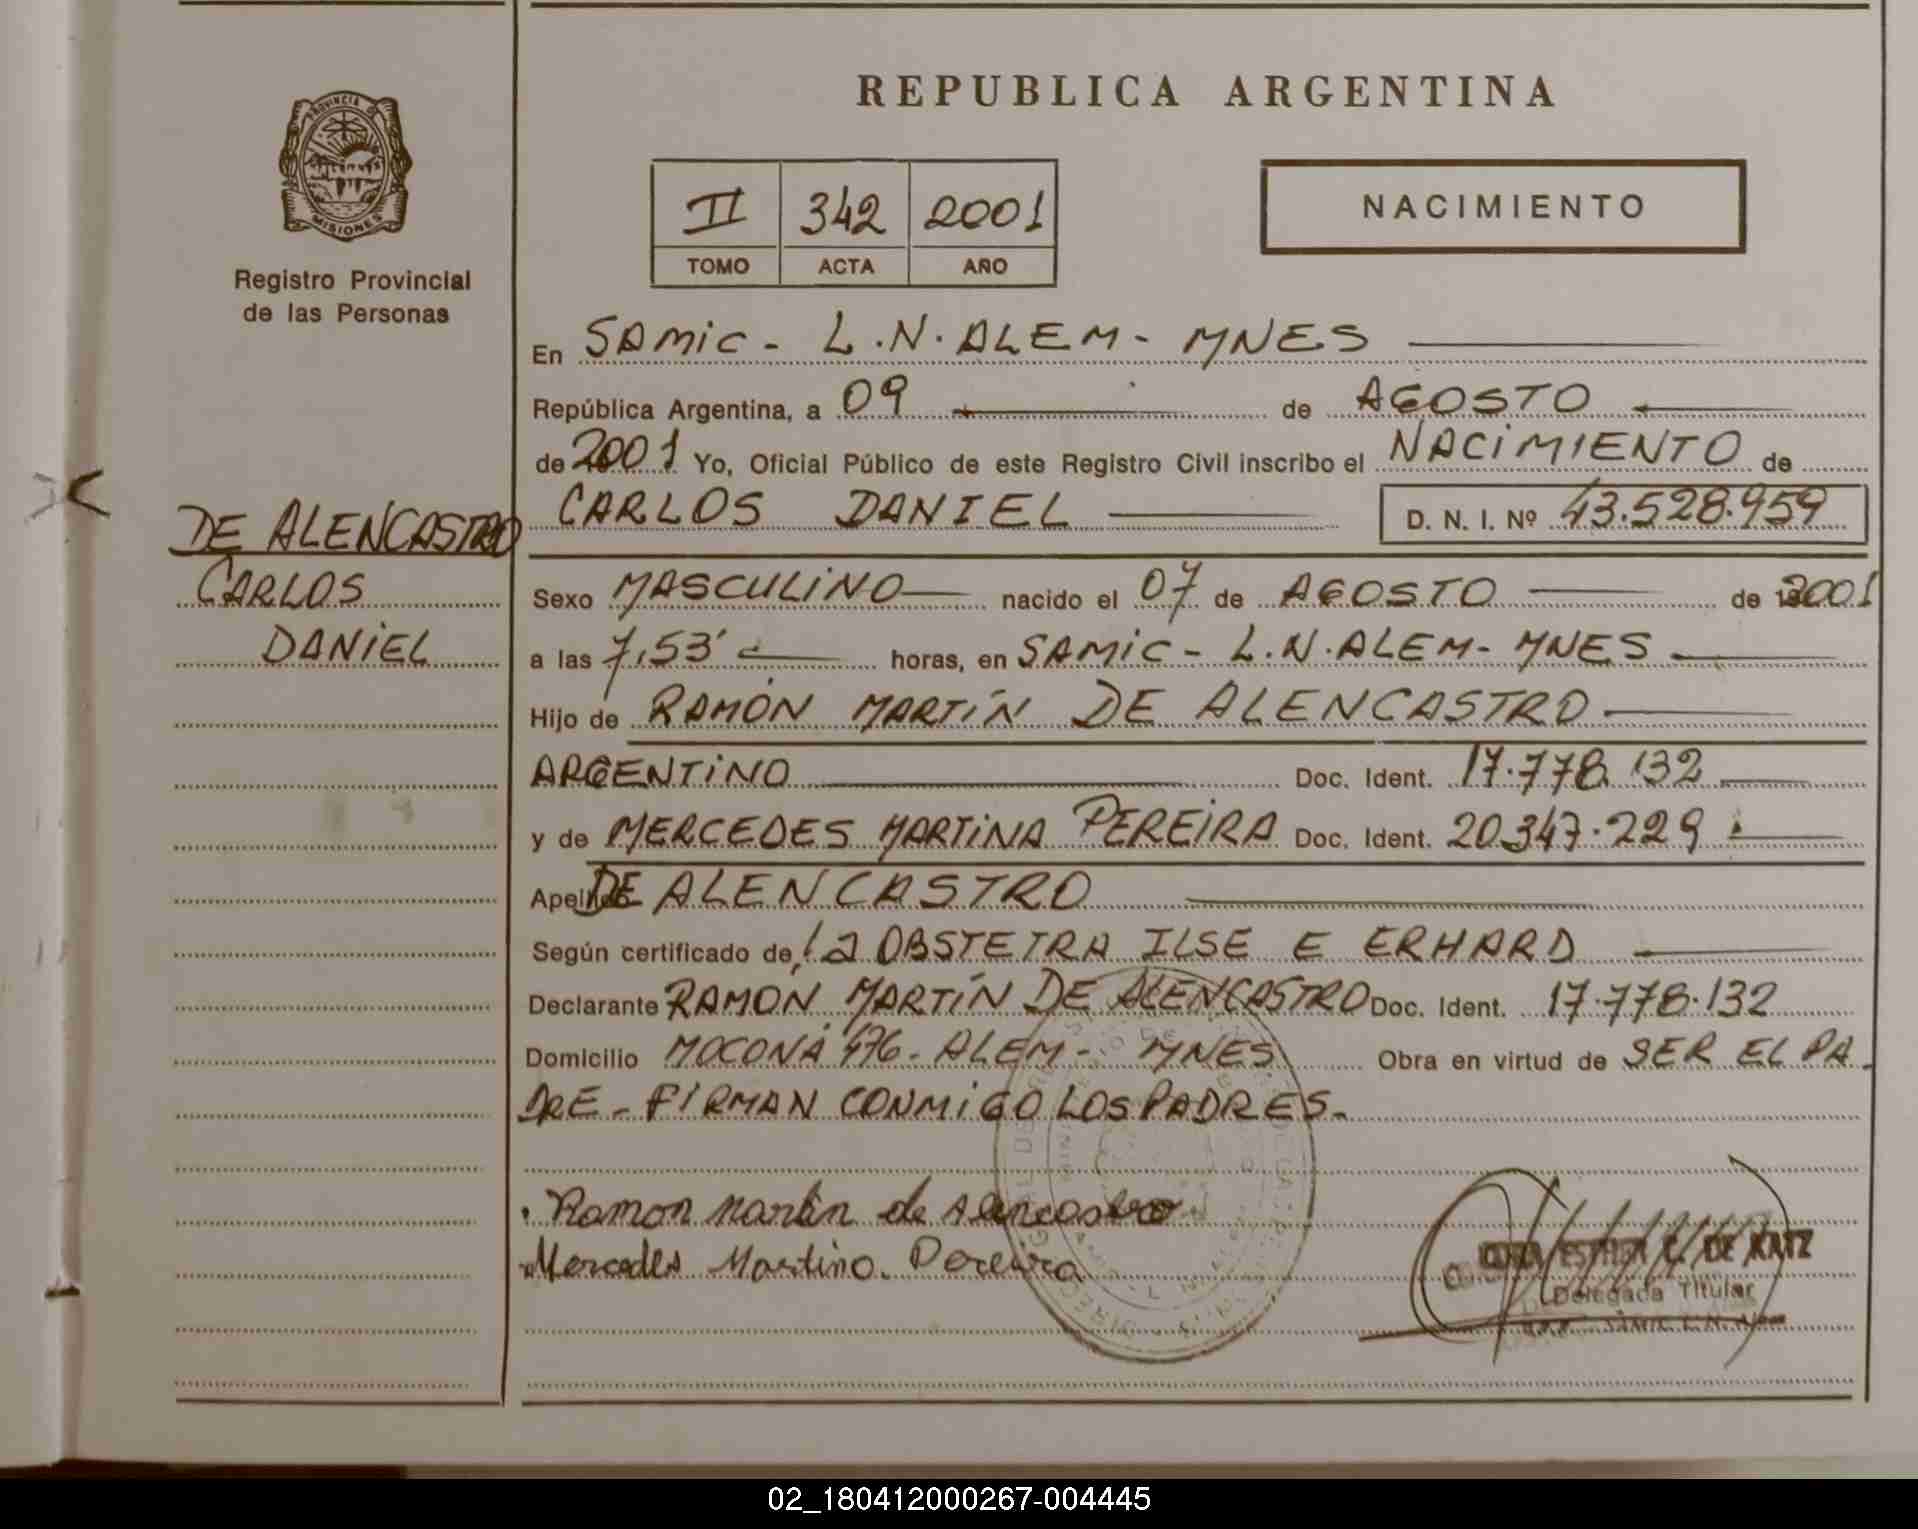 REPUBLICA ARGENTINA
PROVINCIA D
MISIONES
Registro Provincial
de las Personas
II 342 2001
TOMO ACTA AÑO
NACIMIENTO
En SAMiC - L.N.ALEM - MNES
República Argentina, a 09 de AGOSTO
de 2001 Yo, Oficial Público de este Registro Civil inscribo el NACiMIENTO de
CARLOS DANIEL D. N. I. Nº 43.528.959
DE ALENCASTRO
CARLOS
DANiEL
Sexo MASCULiNO nacido el 07 de AGOSTO de 2001
a las 7,53' horas, en SAMiC - L.N.ALEM - MNES
Hijo de RAMÓN MARTÍN DE ALENCASTRO
ARGENTiNO Doc. Ident. 17.778.132
y de MERCEDES MARTiNA PEREiRA Doc. Ident. 20.347.229
Apellido DE ALENCASTRO
Según certificado de, la OBSTETRA ILSE E ERHARD
Declarante RAMÓN MARTÍN DE ALENCASTRO Doc. Ident. 17.778.132
Domicilio MOCONÁ 476 - ALEM - MNES Obra en virtud de SER EL PA-
DRE - FiRMAN CONMiGO LOS PADRES.-
Ramon Martin de Alencastro
Mercedes Martina Pereira
ESTHER C. DE KATZ
Delegada Titular
02_180412000267-004445